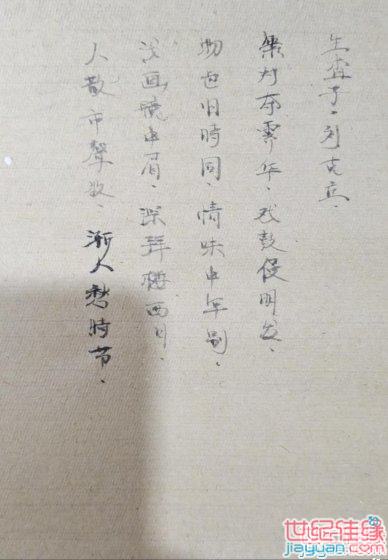 生查子·刘克庄.
繁灯夺霁华.戏鼓侵明发.
物色旧時同.情味中年别.
浅画镜中眉.深拜楼西月.
人散市聲收.渐入愁時节.
世纪佳缘
jiayuan.com